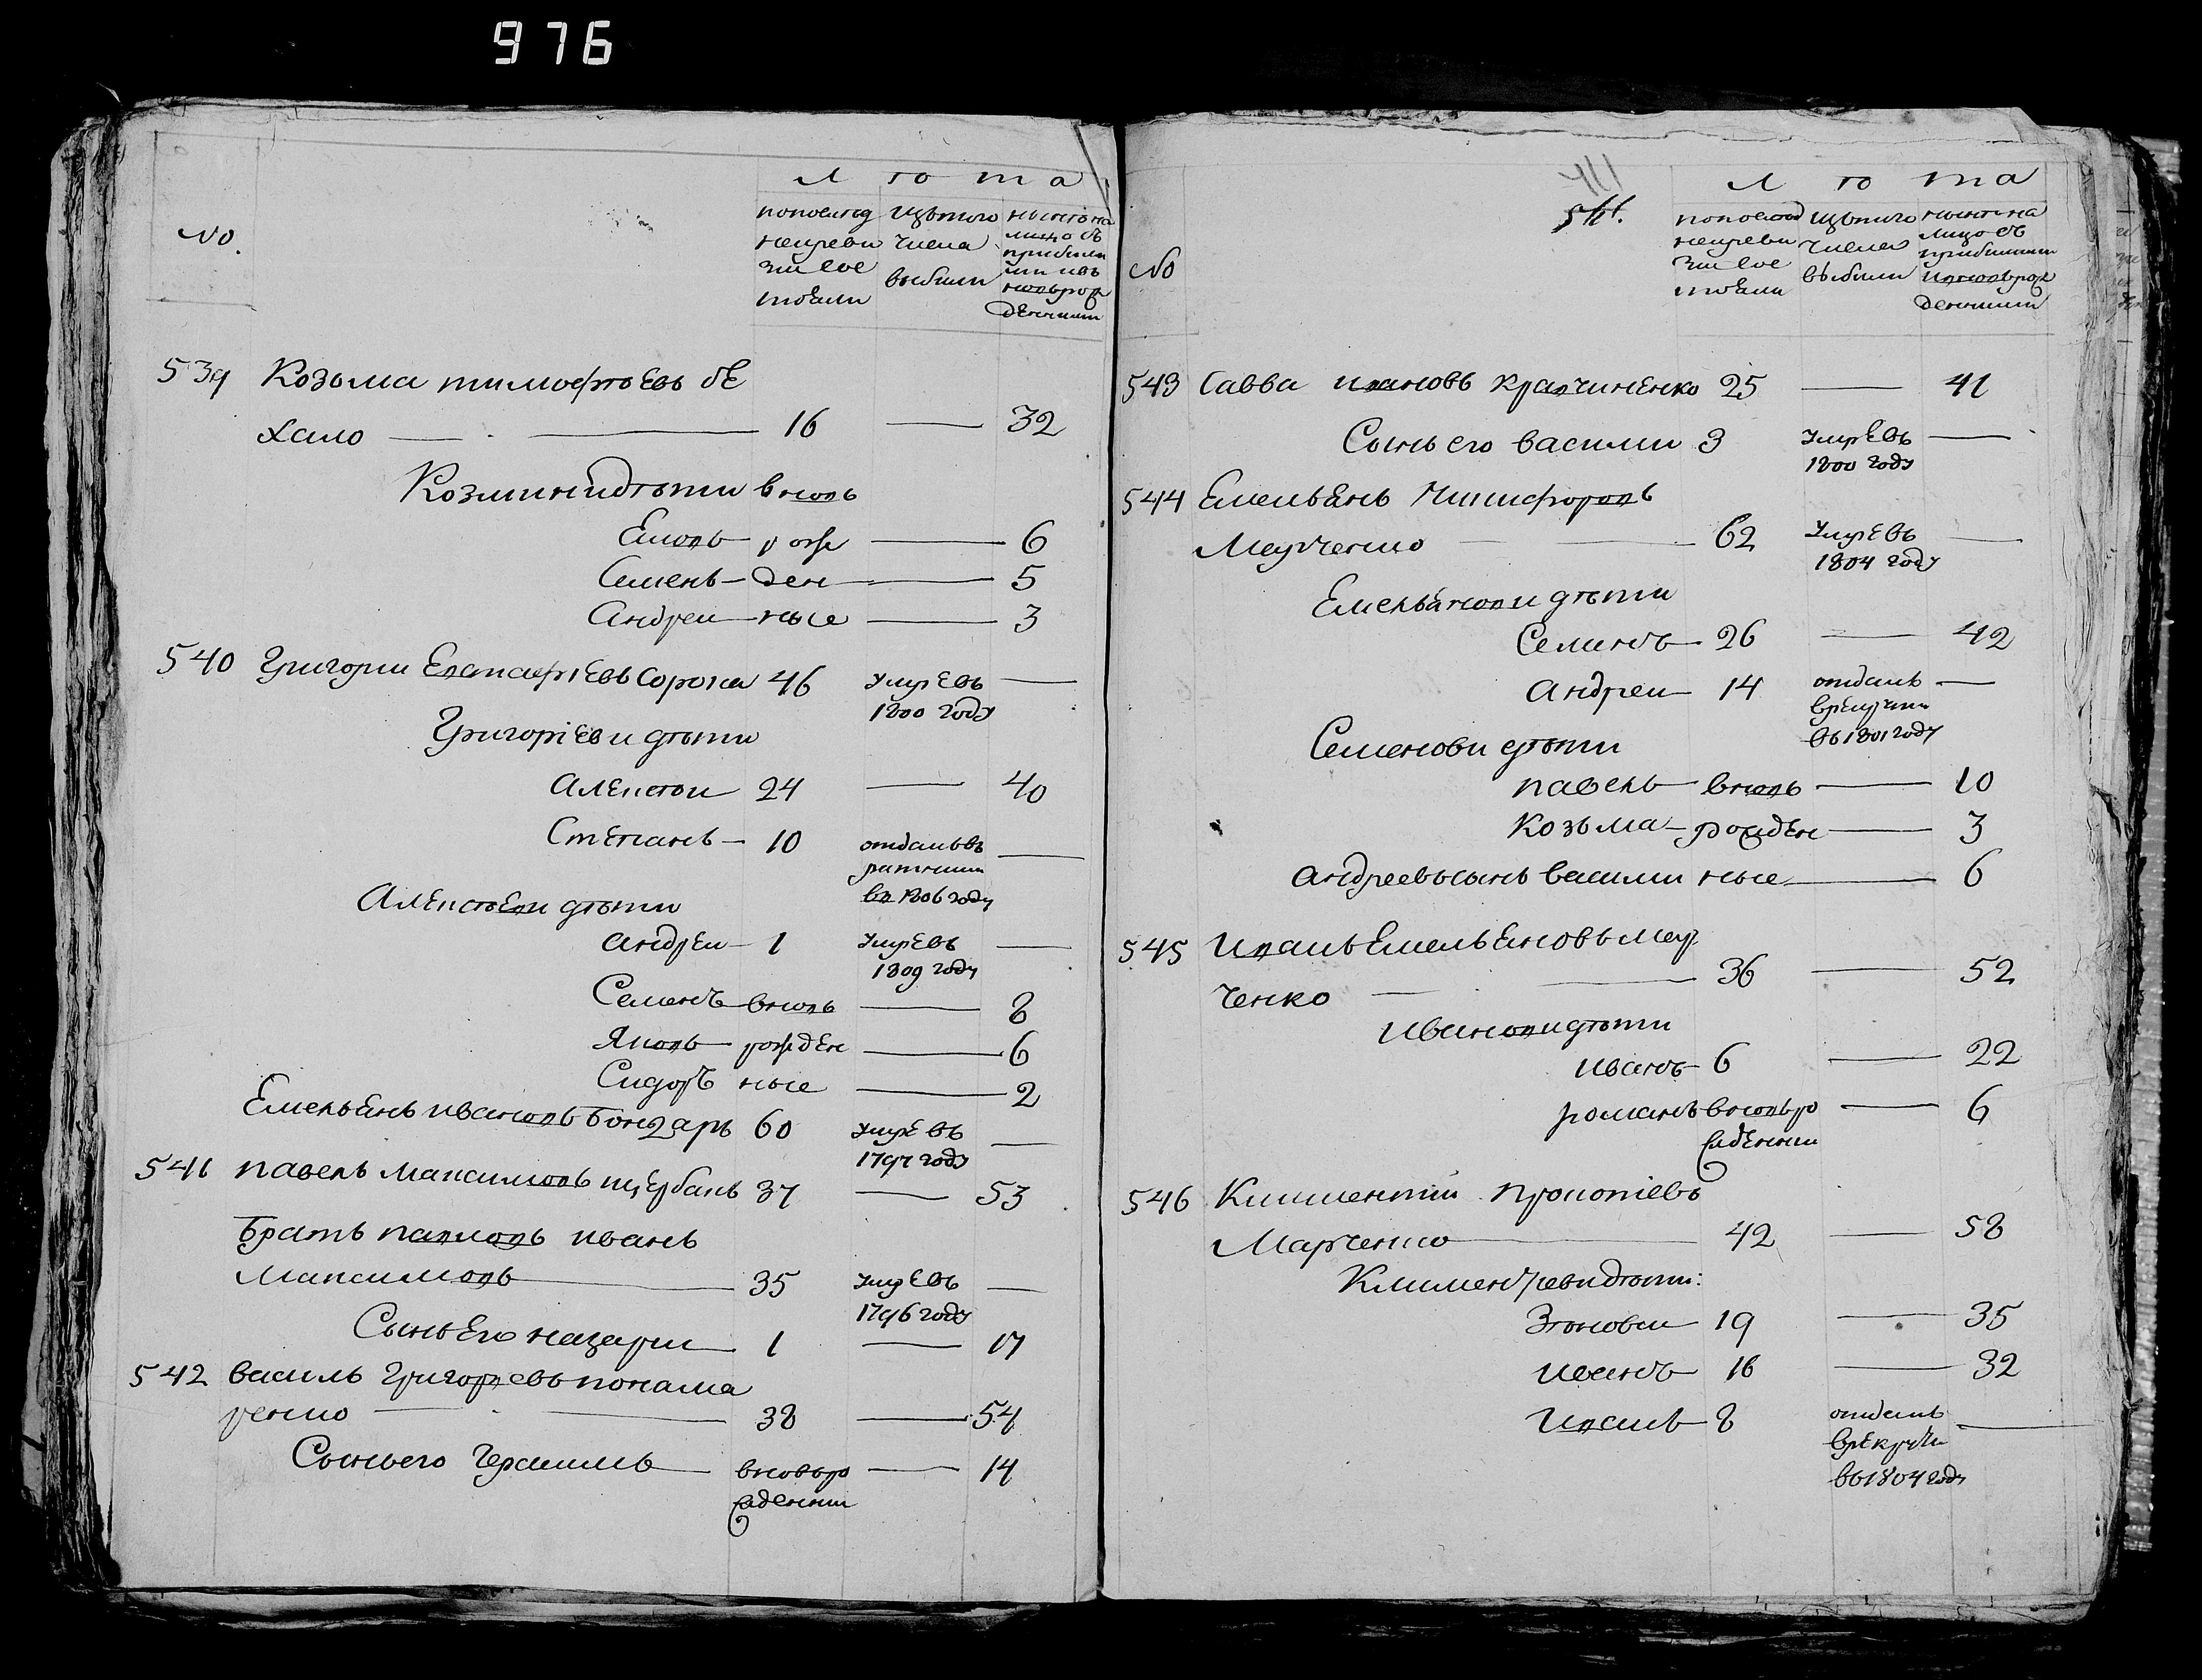 976
Л ѣ т а
No.
по последней ревизии состояли
изъ того числа выбыли
ныне на лицо съ прибылыми и новорожденными
539 Козьма тимофѣевъ бе
хало — 16 — 32
Козмини дѣти вновь
Яковъ рож — 6
Семенъ ден — 5
Андреи ные — 3
540 Григории Евстафіевъ сорока 46 умревъ —
1800 году
Григоріеви дѣти
Алексѣи 24 — 40
Степанъ 10 отданъ въ —
ратники
въ 1806 году
Алексѣеви дѣти
андреи 1 умревъ —
1809 году
Семенъ вновь — 8
Яковъ рожден — 6
Сидоръ ные — 2
Емельянъ ивановъ Бондарь 60 умревъ —
1797 году
541 павелъ Максимовъ щербань 37 — 53
Братъ павловъ иванъ
Максимовъ 35 умревъ —
1796 году
Сынъ Его назари 1 — 17
542 василь Григорьевъ понама
ренко 38 — 54
Сынъ его Герасимъ вновьро — 14
жденни
511.
411
Л ѣ т а
No
по последней ревизии состояли
изъ того числа выбыли
ныне на лицо съ прибылыми и новорожденными
543 Савва ивановъ кравчиненко 25 — 41
Сынъ его василии 3 умревъ —
1800 году
544 Емельянъ Никифоровъ
Марченко — 62 умревъ —
1804 году
Емельянови дѣти
Семенъ 26 — 42
Андреи 14 отданъ —
врекрути
въ 1801 году
Семенови дѣти
павелъ вновь — 10
Козьма рожден — 3
андреевъ сынъ василии ные — 6
545 Иванъ Емельяновъ Мар
ченко — 36 — 52
Иванови дѣти
иванъ 6 — 22
романъ вновьро — 6
жденни
546 Климентии прокопіевъ
Марченко 42 — 58
Климентиеви дѣти:
Зѣновеи 19 — 35
иванъ 16 — 32
Иванъ 8 отданъ —
врекрути
въ 1804 году